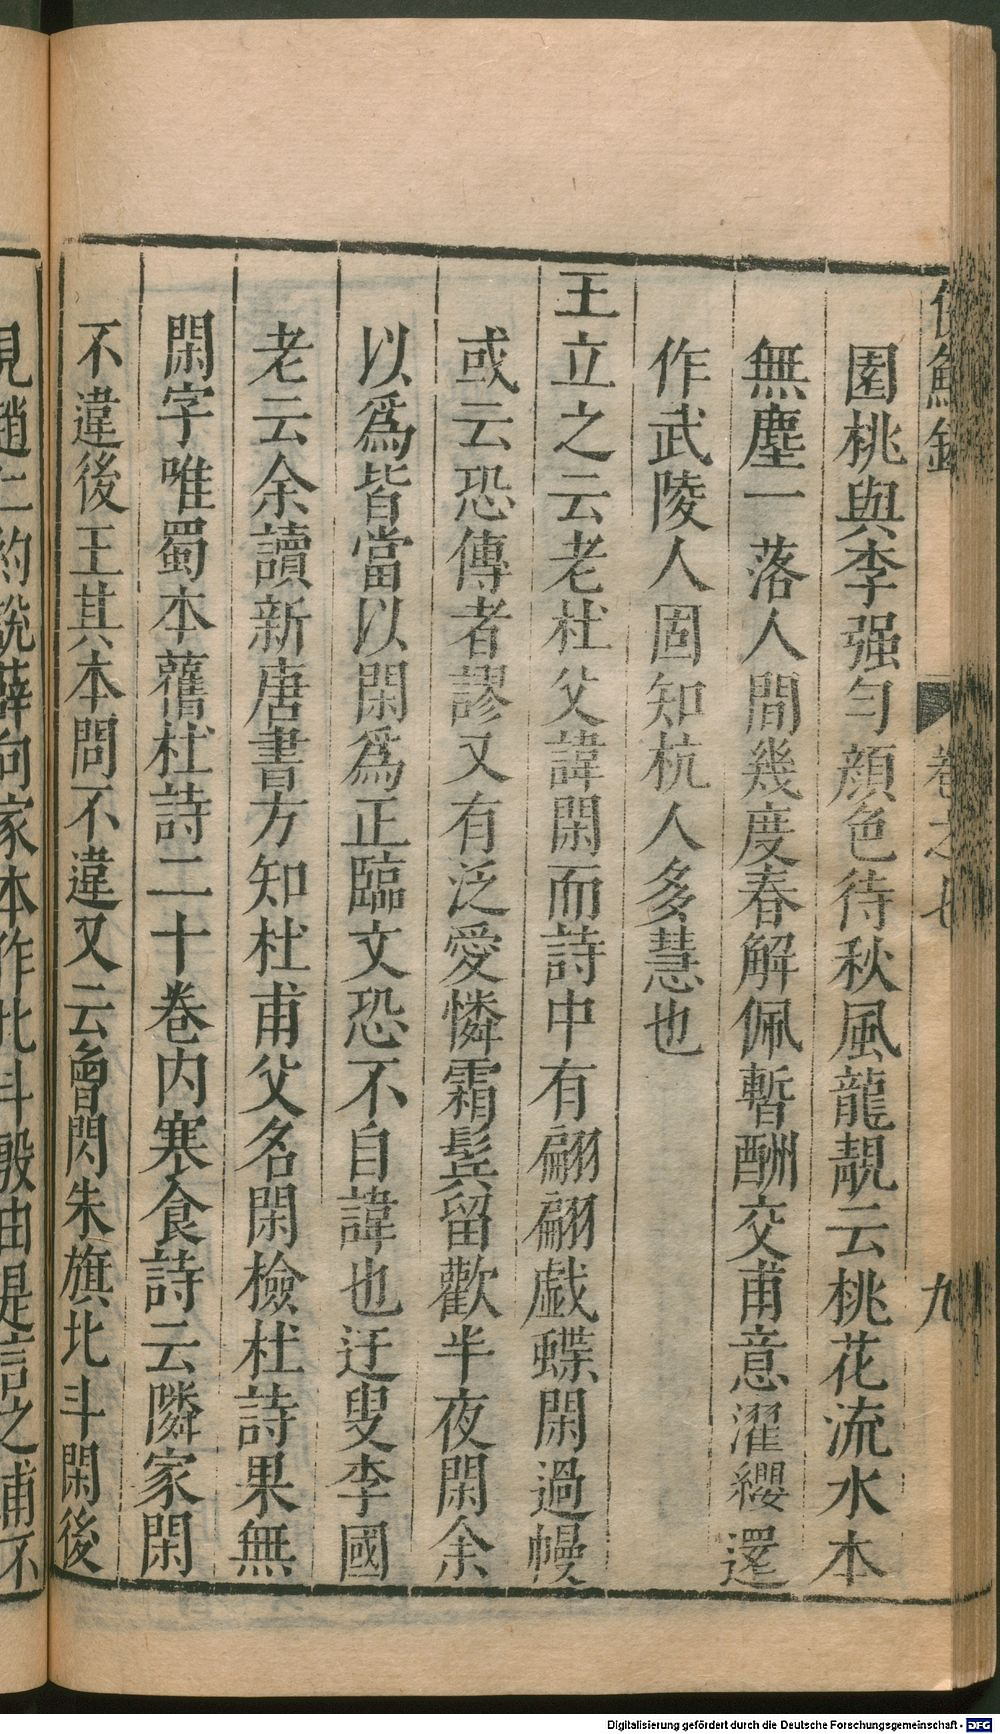 侯鯖錄 卷之七 九
園桃與李强勻顔色待秋風龍靚云桃花流水本
無塵一落人間幾度春解佩暫酬交甫意濯纓還
作武陵人固知杭人多慧也
王立之云老杜父諱閑而詩中有翩翩戯蝶閑過幔
或云恐傳者謬又有泛愛憐霜鬂留歡半夜閑余
以爲皆當以閑爲正臨文恐不自諱也迂叟李國
老云余讀新唐書方知杜甫父名閑檢杜詩果無
閑字唯蜀本舊杜詩二十卷内寒食詩云隣家閑
不違後王其本問不違又云曾閃朱旗北斗閑後
見趙仁約說薛向家本作北斗殷由是言之甫不
Digitalisierung gefördert durch die Deutsche Forschungsgemeinschaft - DFG